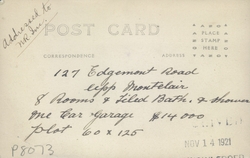 Addressed to
POST CARD
PLACE
STAMP
HERE
CORRESPONDENCE
ADDRESS
127 Edgemont Road
Upp Montclair
8 Rooms & Tiled Bath. & Shower
One Car Garage $14000
plot 60 x 125
NOV 14 1921
P8073